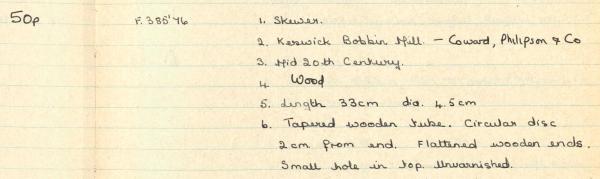 50p F. 385'76 1. Skewer.
2. Keswick Bobbin Mill. – Coward, Philipson & Co
3. Mid 20th Century.
4. Wood
5. Length 33cm dia. 4.5cm
6. Tapered wooden tube. Circular disc
2cm from end. Flattened wooden ends.
Small hole in top. Unvarnished.